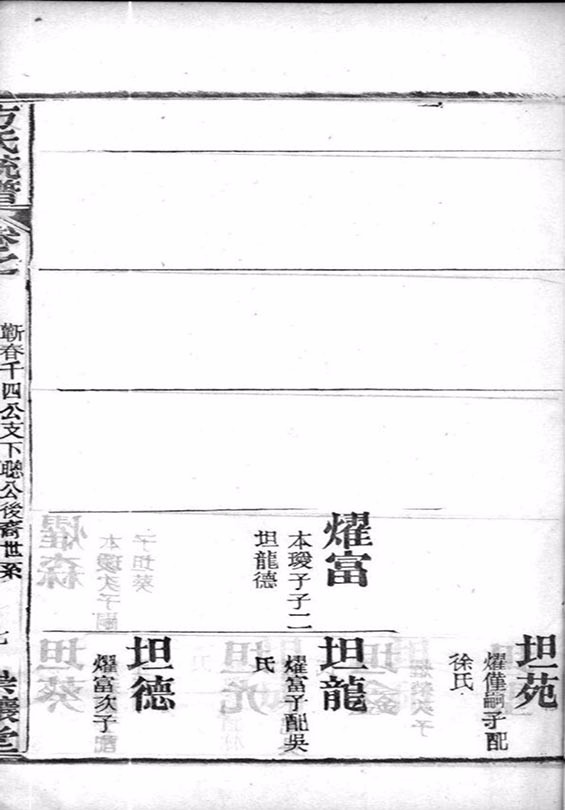 燿富
本璦子子二
坦龍德
坦苑
燿僅嗣子配
徐氏
坦龍
燿富子配吳
氏
坦德
燿富次子
方氏統譜
卷之
蘄春千四公支下聰公後裔世系
七